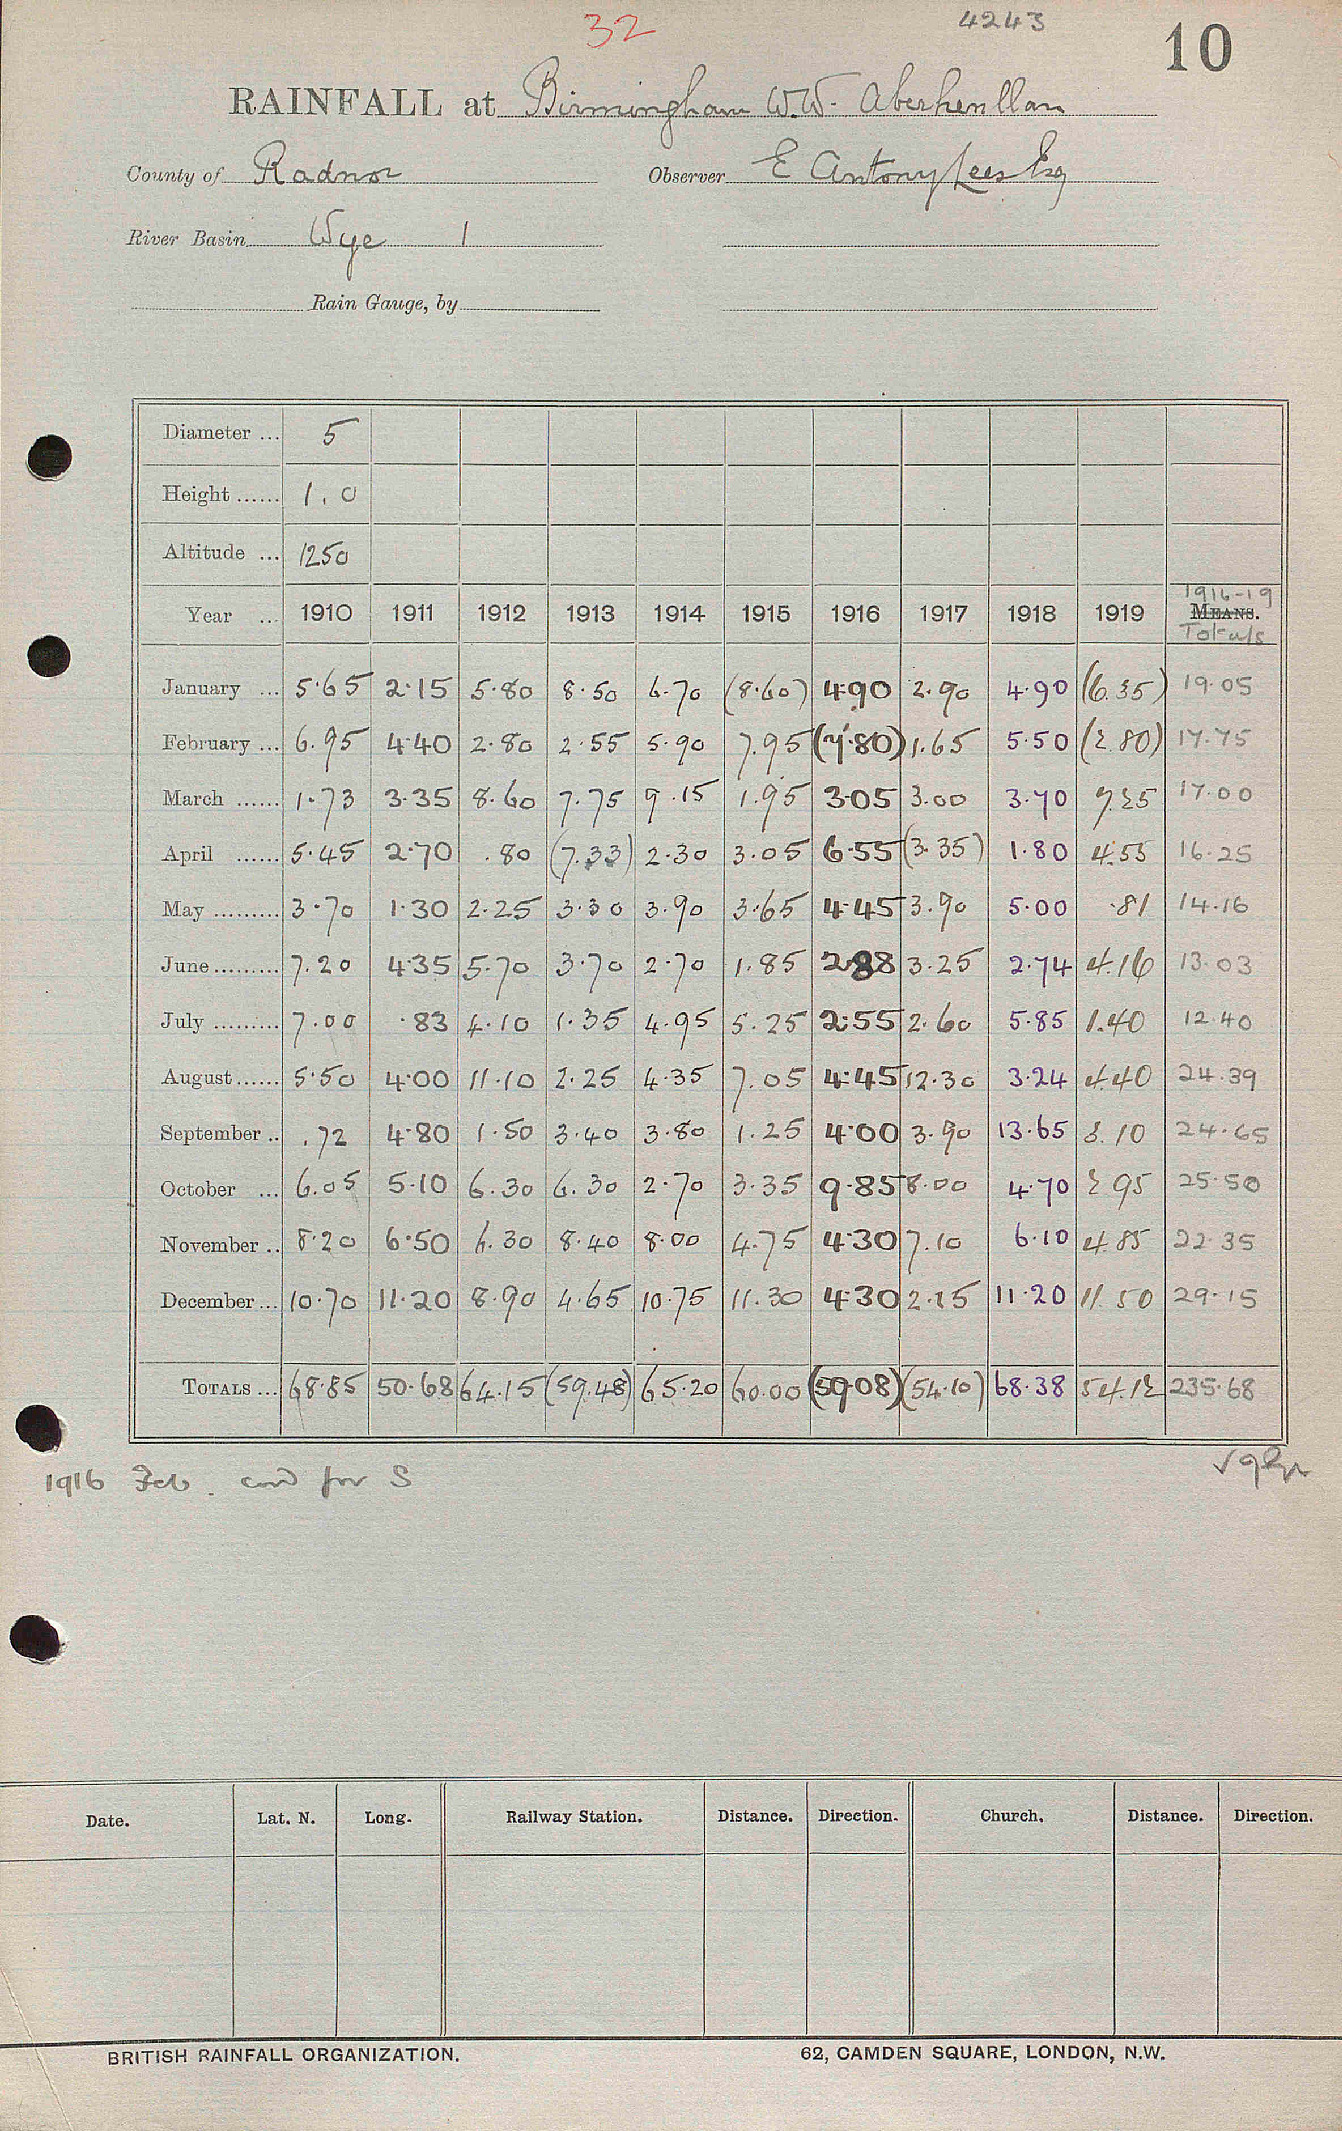 32
4243
10
RAINFALL at Birmingham W.W. Aberhenllan
County of Radnor Observer E Antony Lees Esq
River Basin Wye 1
Rain Gauge, by
Diameter ... 5
Height ...... 1.0
Altitude ... 1250
1916-19
Year ... 1910 1911 1912 1913 1914 1915 1916 1917 1918 1919 MEANS.
Totals
January ... 5.65 2.15 5.80 8.50 6.70 (8.60) 4.90 2.90 4.90 (6.35) 19.05
February ... 6.95 4.40 2.80 2.55 5.90 7.95 (7.80) 1.65 5.50 (2.80) 17.75
March ...... 1.73 3.35 8.60 7.75 9.15 1.95 3.05 3.00 3.70 7.25 17.00
April ...... 5.45 2.70 .80 (7.33) 2.30 3.05 6.55 (3.35) 1.80 4.55 16.25
May ......... 3.70 1.30 2.25 3.30 3.90 3.65 4.45 3.90 5.00 .81 14.16
June ......... 7.20 4.35 5.70 3.70 2.70 1.85 2.88 3.25 2.74 4.16 13.03
July ......... 7.00 .83 4.10 1.35 4.95 5.25 2.55 2.60 5.85 1.40 12.40
August ...... 5.50 4.00 11.10 2.25 4.35 7.05 4.45 12.30 3.24 4.40 24.39
September .. .72 4.80 1.50 3.40 3.80 1.25 4.00 3.90 13.65 3.10 24.65
October ... 6.05 5.10 6.30 6.30 2.70 3.35 9.85 8.00 4.70 2.95 25.50
November .. 8.20 6.50 6.30 8.40 8.00 4.75 4.30 7.10 6.10 4.85 22.35
December ... 10.70 11.20 8.90 4.65 10.75 11.30 4.30 2.15 11.20 11.50 29.15
TOTALS ... 68.85 50.68 64.15 (59.48) 65.20 60.00 (59.08) (54.10) 68.38 54.12 235.68
1916 Feb. cord for S
Date. Lat. N. Long. Railway Station. Distance. Direction. Church. Distance. Direction.
BRITISH RAINFALL ORGANIZATION. 62, CAMDEN SQUARE, LONDON, N.W.